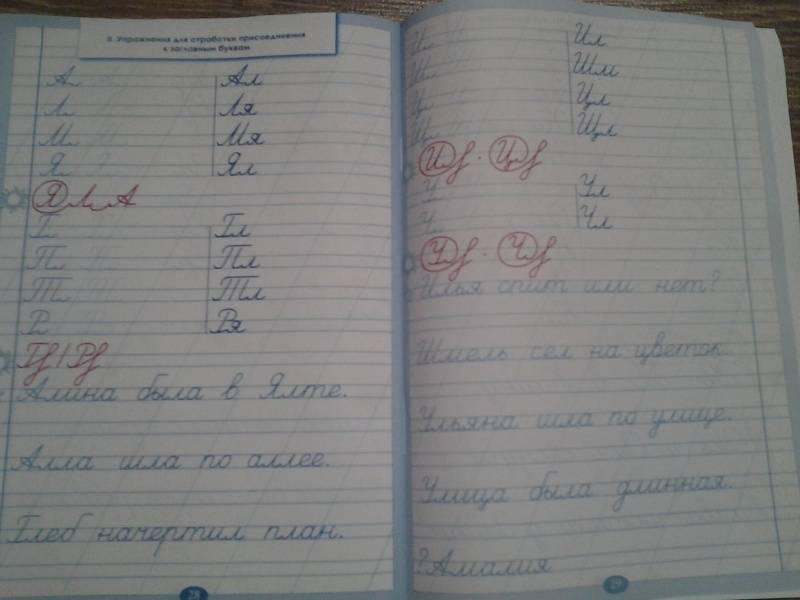 II. Упражнения для отработки присоединения
к заглавным буквам
Ал Ал
Ля
М Мя
Я Ял
Я Л А
Г Гл
П Пл
Т Тл
Р Ря
Алина была в Ялте.
Алла шла по аллее.
Глеб начертил план.
28
И Ил
Ш Шм
Ц Цл
Щ Щл
У Ул
Ч Чл
Илья спит или нет?
Шмель сел на цветок.
Ульяна шла по улице.
Улица была длинная.
?Амалия
29